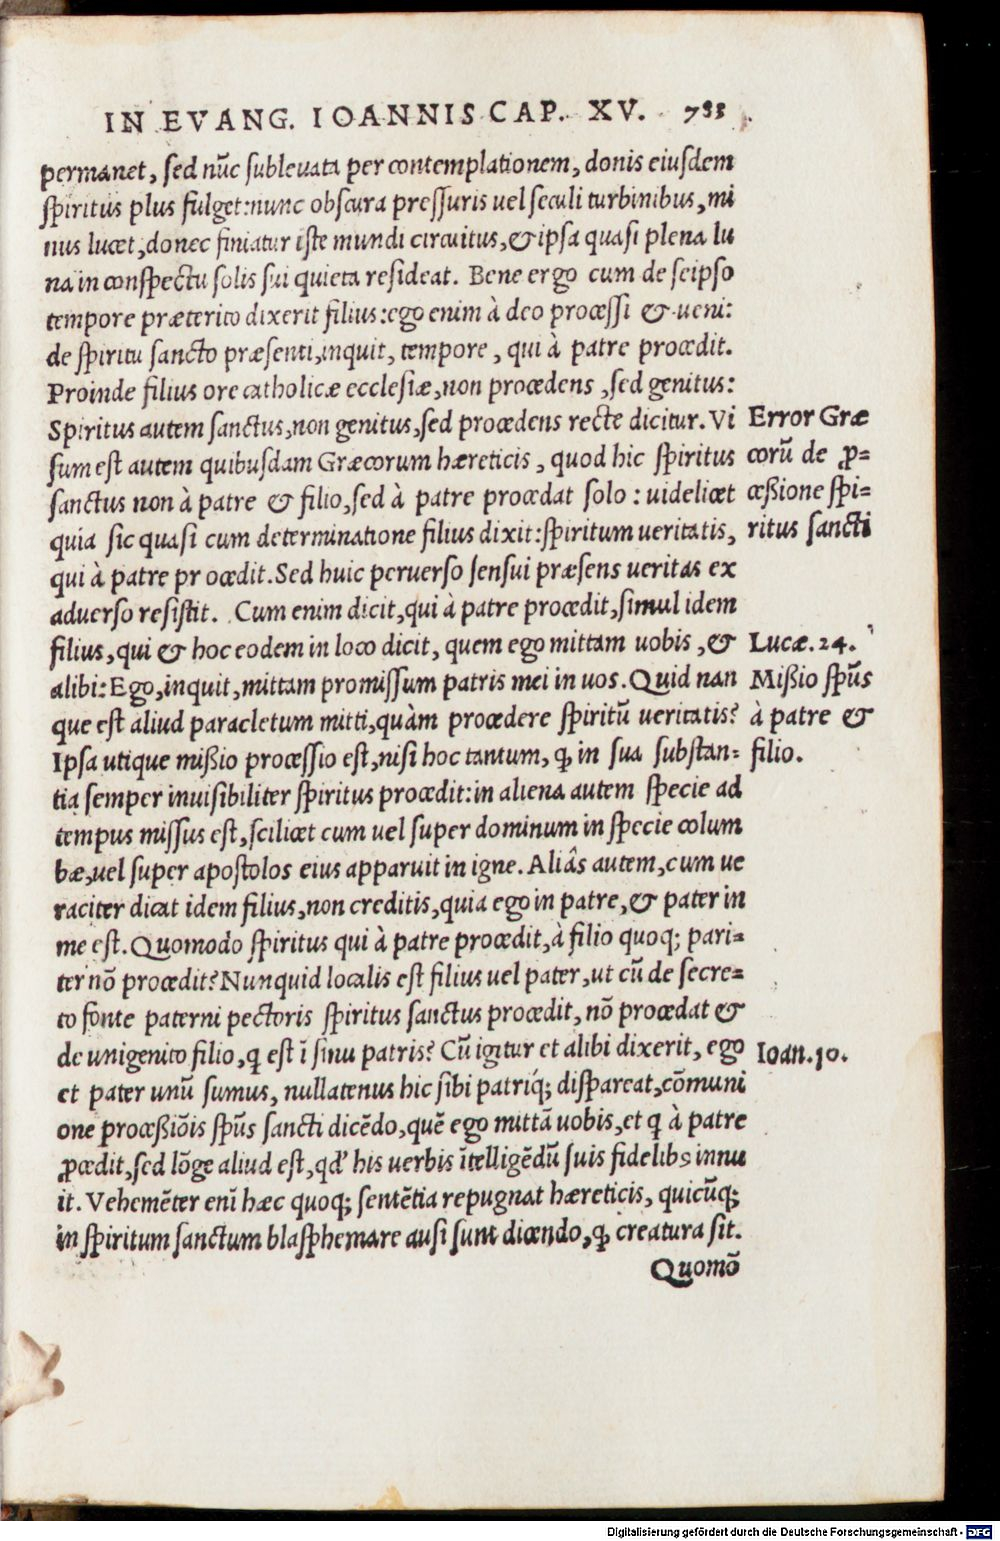 IN EVANG. IOANNIS CAP. XV. 733
permanet, sed nūc subleuata per contemplationem, donis eiusdem
spiritus plus fulget:nunc obscura pressuris uel seculi turbinibus, mi
nus lucet, donec finiatur iste mundi circuitus, & ipsa quasi plena lu
na in conspectu solis sui quieta resideat. Bene ergo cum de seipso
tempore præterito dixerit filius:ego enim à deo processi & ueni:
de spiritu sancto præsenti, inquit, tempore, qui à patre procedit.
Proinde filius ore catholicæ ecclesiæ, non procedens, sed genitus:
Spiritus autem sanctus, non genitus, sed procedens recte dicitur. Vi
sum est autem quibusdam Græcorum hæreticis, quod hic spiritus
sanctus non à patre & filio, sed à patre procedat solo: uidelicet
quia sic quasi cum determinatione filius dixit:spiritum ueritatis,
qui à patre procedit. Sed huic peruerso sensui præsens ueritas ex
aduerso resistit. Cum enim dicit, qui à patre procedit, simul idem
filius, qui & hoc eodem in loco dicit, quem ego mittam uobis, &
alibi: Ego, inquit, mittam promissum patris mei in uos. Quid nan
que est aliud paracletum mitti, quàm procedere spiritū ueritatis?
Ipsa utique mißio processio est, nisi hoc tantum, ꝙ in sua substan=
tia semper inuisibiliter spiritus procedit:in aliena autem specie ad
tempus missus est, scilicet cum uel super dominum in specie colum
bæ, uel super apostolos eius apparuit in igne. Aliâs autem, cum ue
raciter dicat idem filius, non creditis, quia ego in patre, & pater in
me est. Quomodo spiritus qui à patre procedit, à filio quoq; pari=
ter nō procedit? Nunquid localis est filius uel pater, ut cū de secre=
to fonte paterni pectoris spiritus sanctus procedit, nō procedat &
de unigenito filio, q est ī sinu patris? Cū igitur et alibi dixerit, ego
et pater unū sumus, nullatenus hic sibi patriq́; dispareat, cōmuni
one proceßiōis spūs sancti dicēdo, quē ego mittā uobis, et q à patre
ꝓcedit, sed lōge aliud est, qd' his uerbis ītelligēdū suis fidelibꝰ innu
it. Vehemēter enī hæc quoq; sentētia repugnat hæreticis, quicūq;
in spiritum sanctum blasphemare ausi sunt dicendo, ꝙ creatura sit.
Quomō
Error Græ
corū de ꝓ=
ceßione spi=
ritus sancti
Lucæ. 24.
Mißio spūs
à patre &
filio.
Ioan. 10.
Digitalisierung gefördert durch die Deutsche Forschungsgemeinschaft - DFG